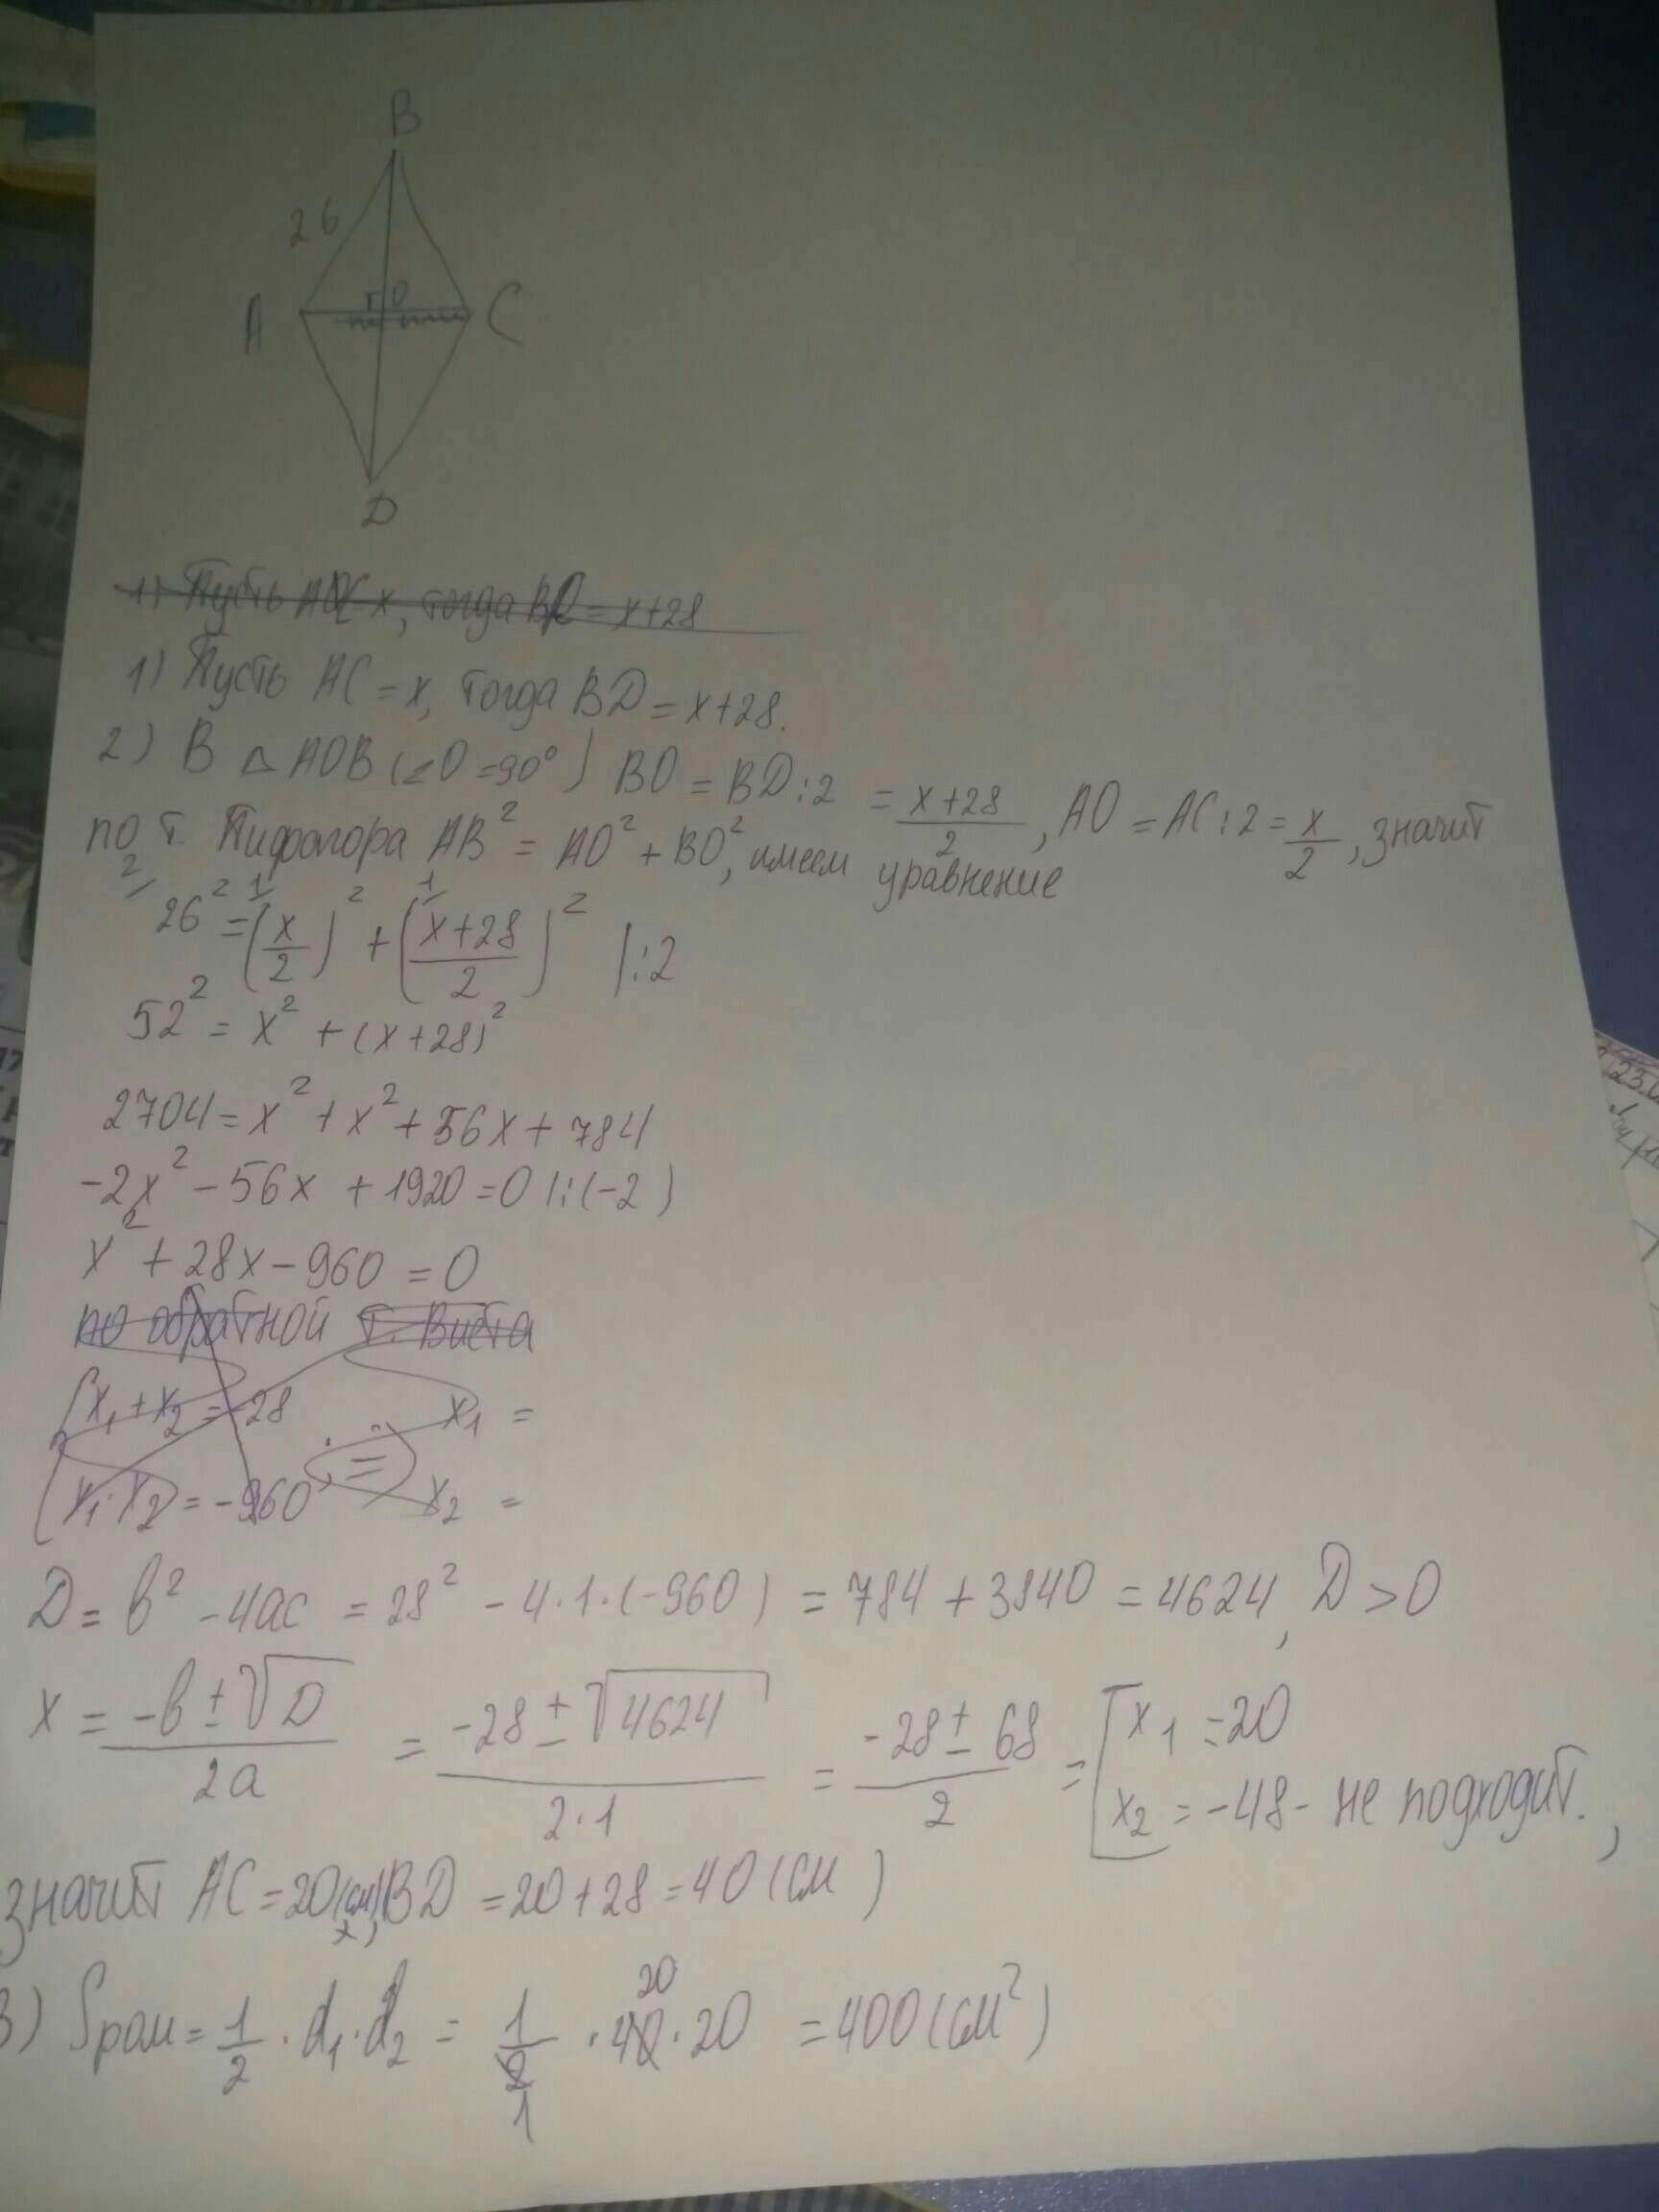 B
26
A
O
C
D
1) Пусть AC = x, тогда BD = x+28
1) Пусть AC = x, тогда BD = x+28.
2) В △ AOB (∠O =90°) BO = BD:2 = (x+28)/2, AO = AC:2 = x/2, значит
по т. Пифагора AB² = AO² + BO², имеем уравнение
26² = (x/2)² + ((x+28)/2)² |:2
52² = x² + (x+28)²
2704 = x² + x² + 56x + 784
-2x² - 56x + 1920 = 0 |:(-2)
x² + 28x - 960 = 0
по обратной т. Виета
x₁ + x₂ = -28 x₁ =
x₁ · x₂ = -960 ; = x₂ =
D = b² - 4ac = 28² - 4·1·(-960) = 784 + 3840 = 4624, D > 0
x = (-b ± √D)/2a = (-28 ± √4624)/2·1 = (-28 ± 68)/2 = [x₁ = 20
x₂ = -48 - не подходит.,
значит AC = 20(см), BD = 20+28 = 40 (см)
3) Sром = 1/2 · d₁ · d₂ = 1/2 · 40 · 20 = 400 (см²)
20
1